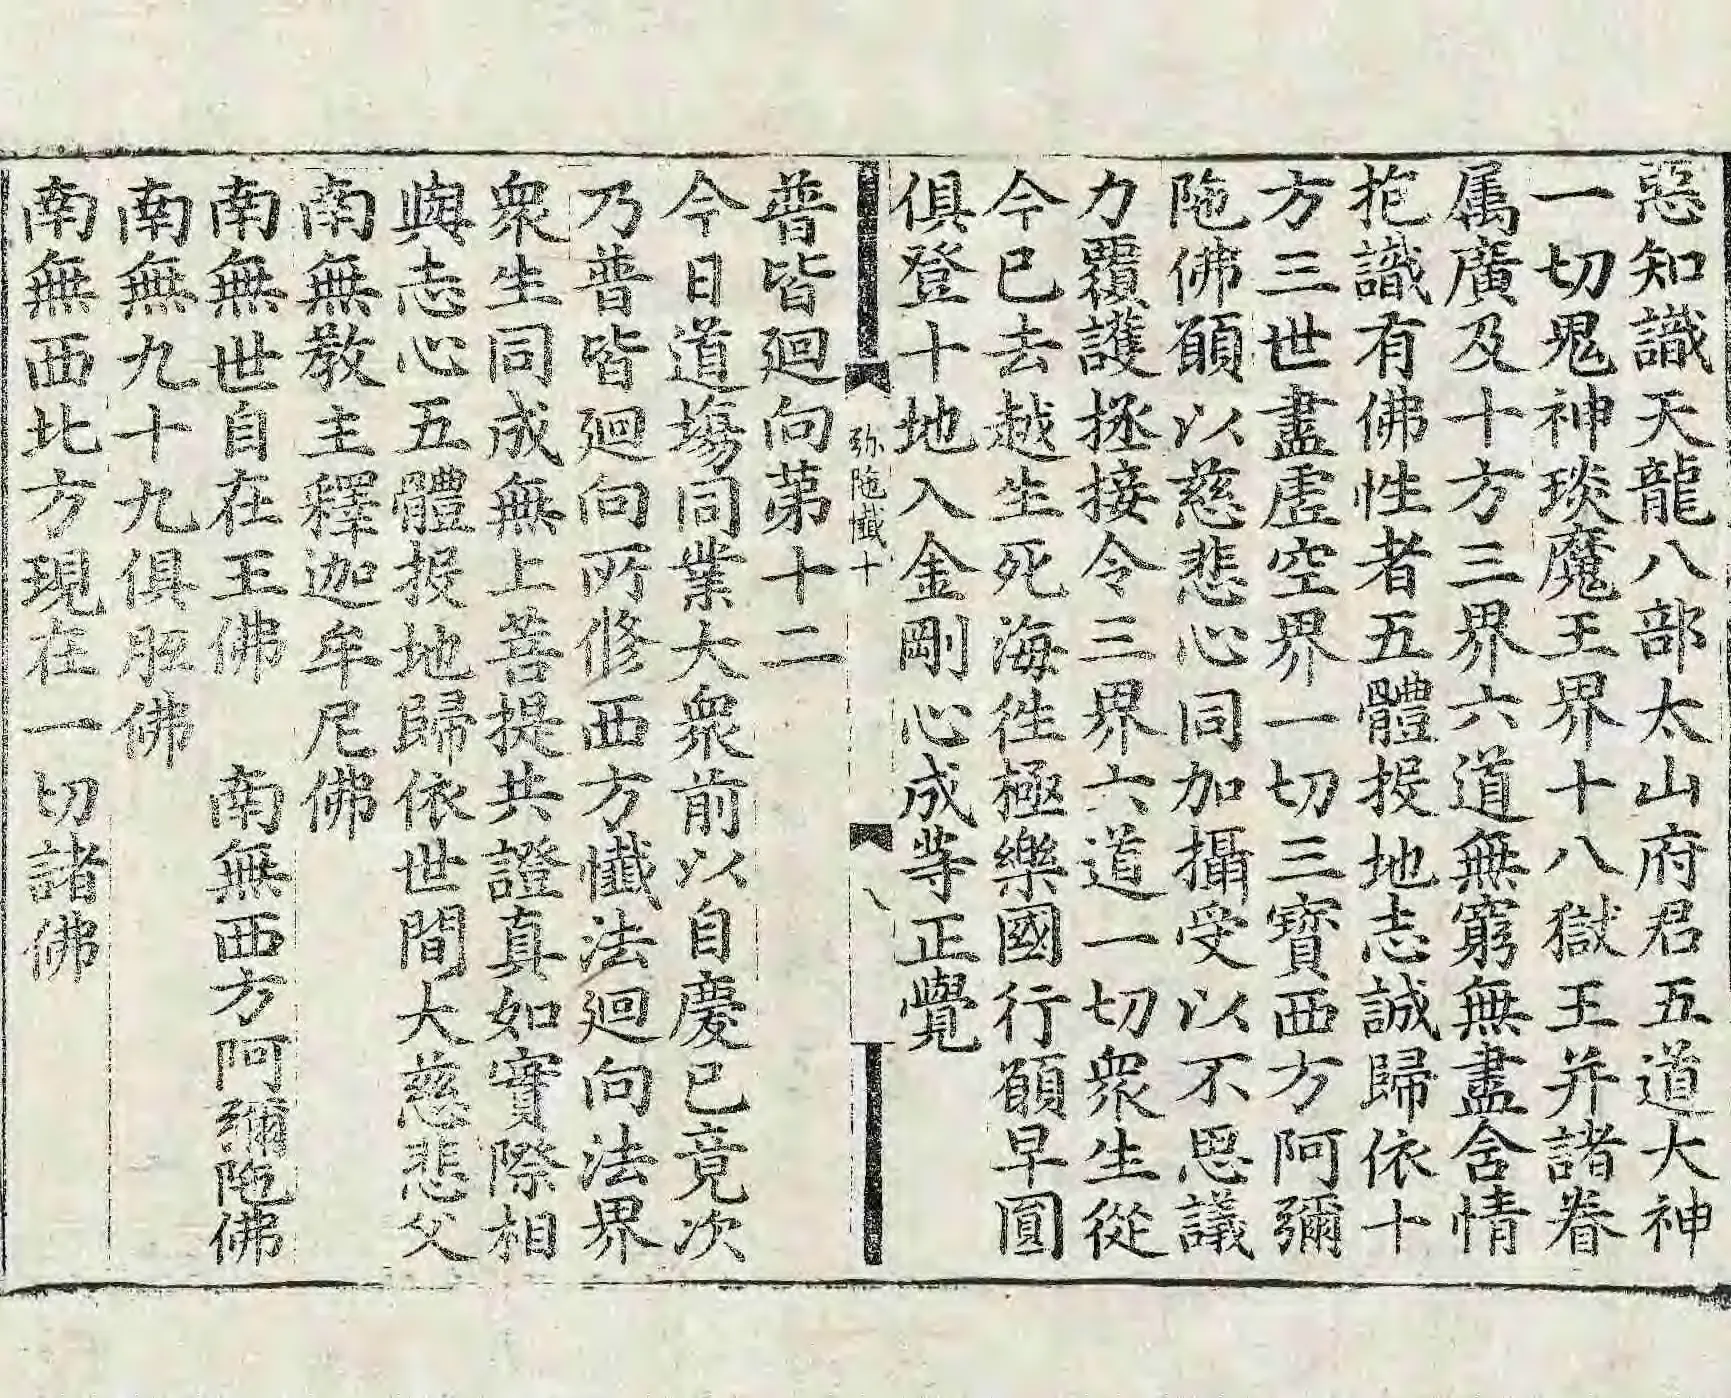 惡知識天龍八部太山府君五道大神
一切鬼神琰魔王界十八獄王并諸眷
属廣及十方三界六道無窮無盡含情
抱識有佛性者五體投地志誠歸依十
方三世盡虛空界一切三寶西方阿彌
陁佛願以慈悲心同加攝受以不思議
力覆護拯接令三界六道一切衆生從
今已去越生死海徃極樂國行願早圓
俱登十地入金剛心成等正覺
弥陁懺十 八
普皆廻向第十二
今日道場同業大衆前以自慶已竟次
乃普皆廻向所修西方懺法廻向法界
衆生同成無上菩提共證真如實際相
與志心五體投地歸依世間大慈悲父
南無教主釋迦牟尼佛
南無世自在王佛 南無西方阿彌陁佛
南無九十九俱胝佛
南無西北方現在一切諸佛